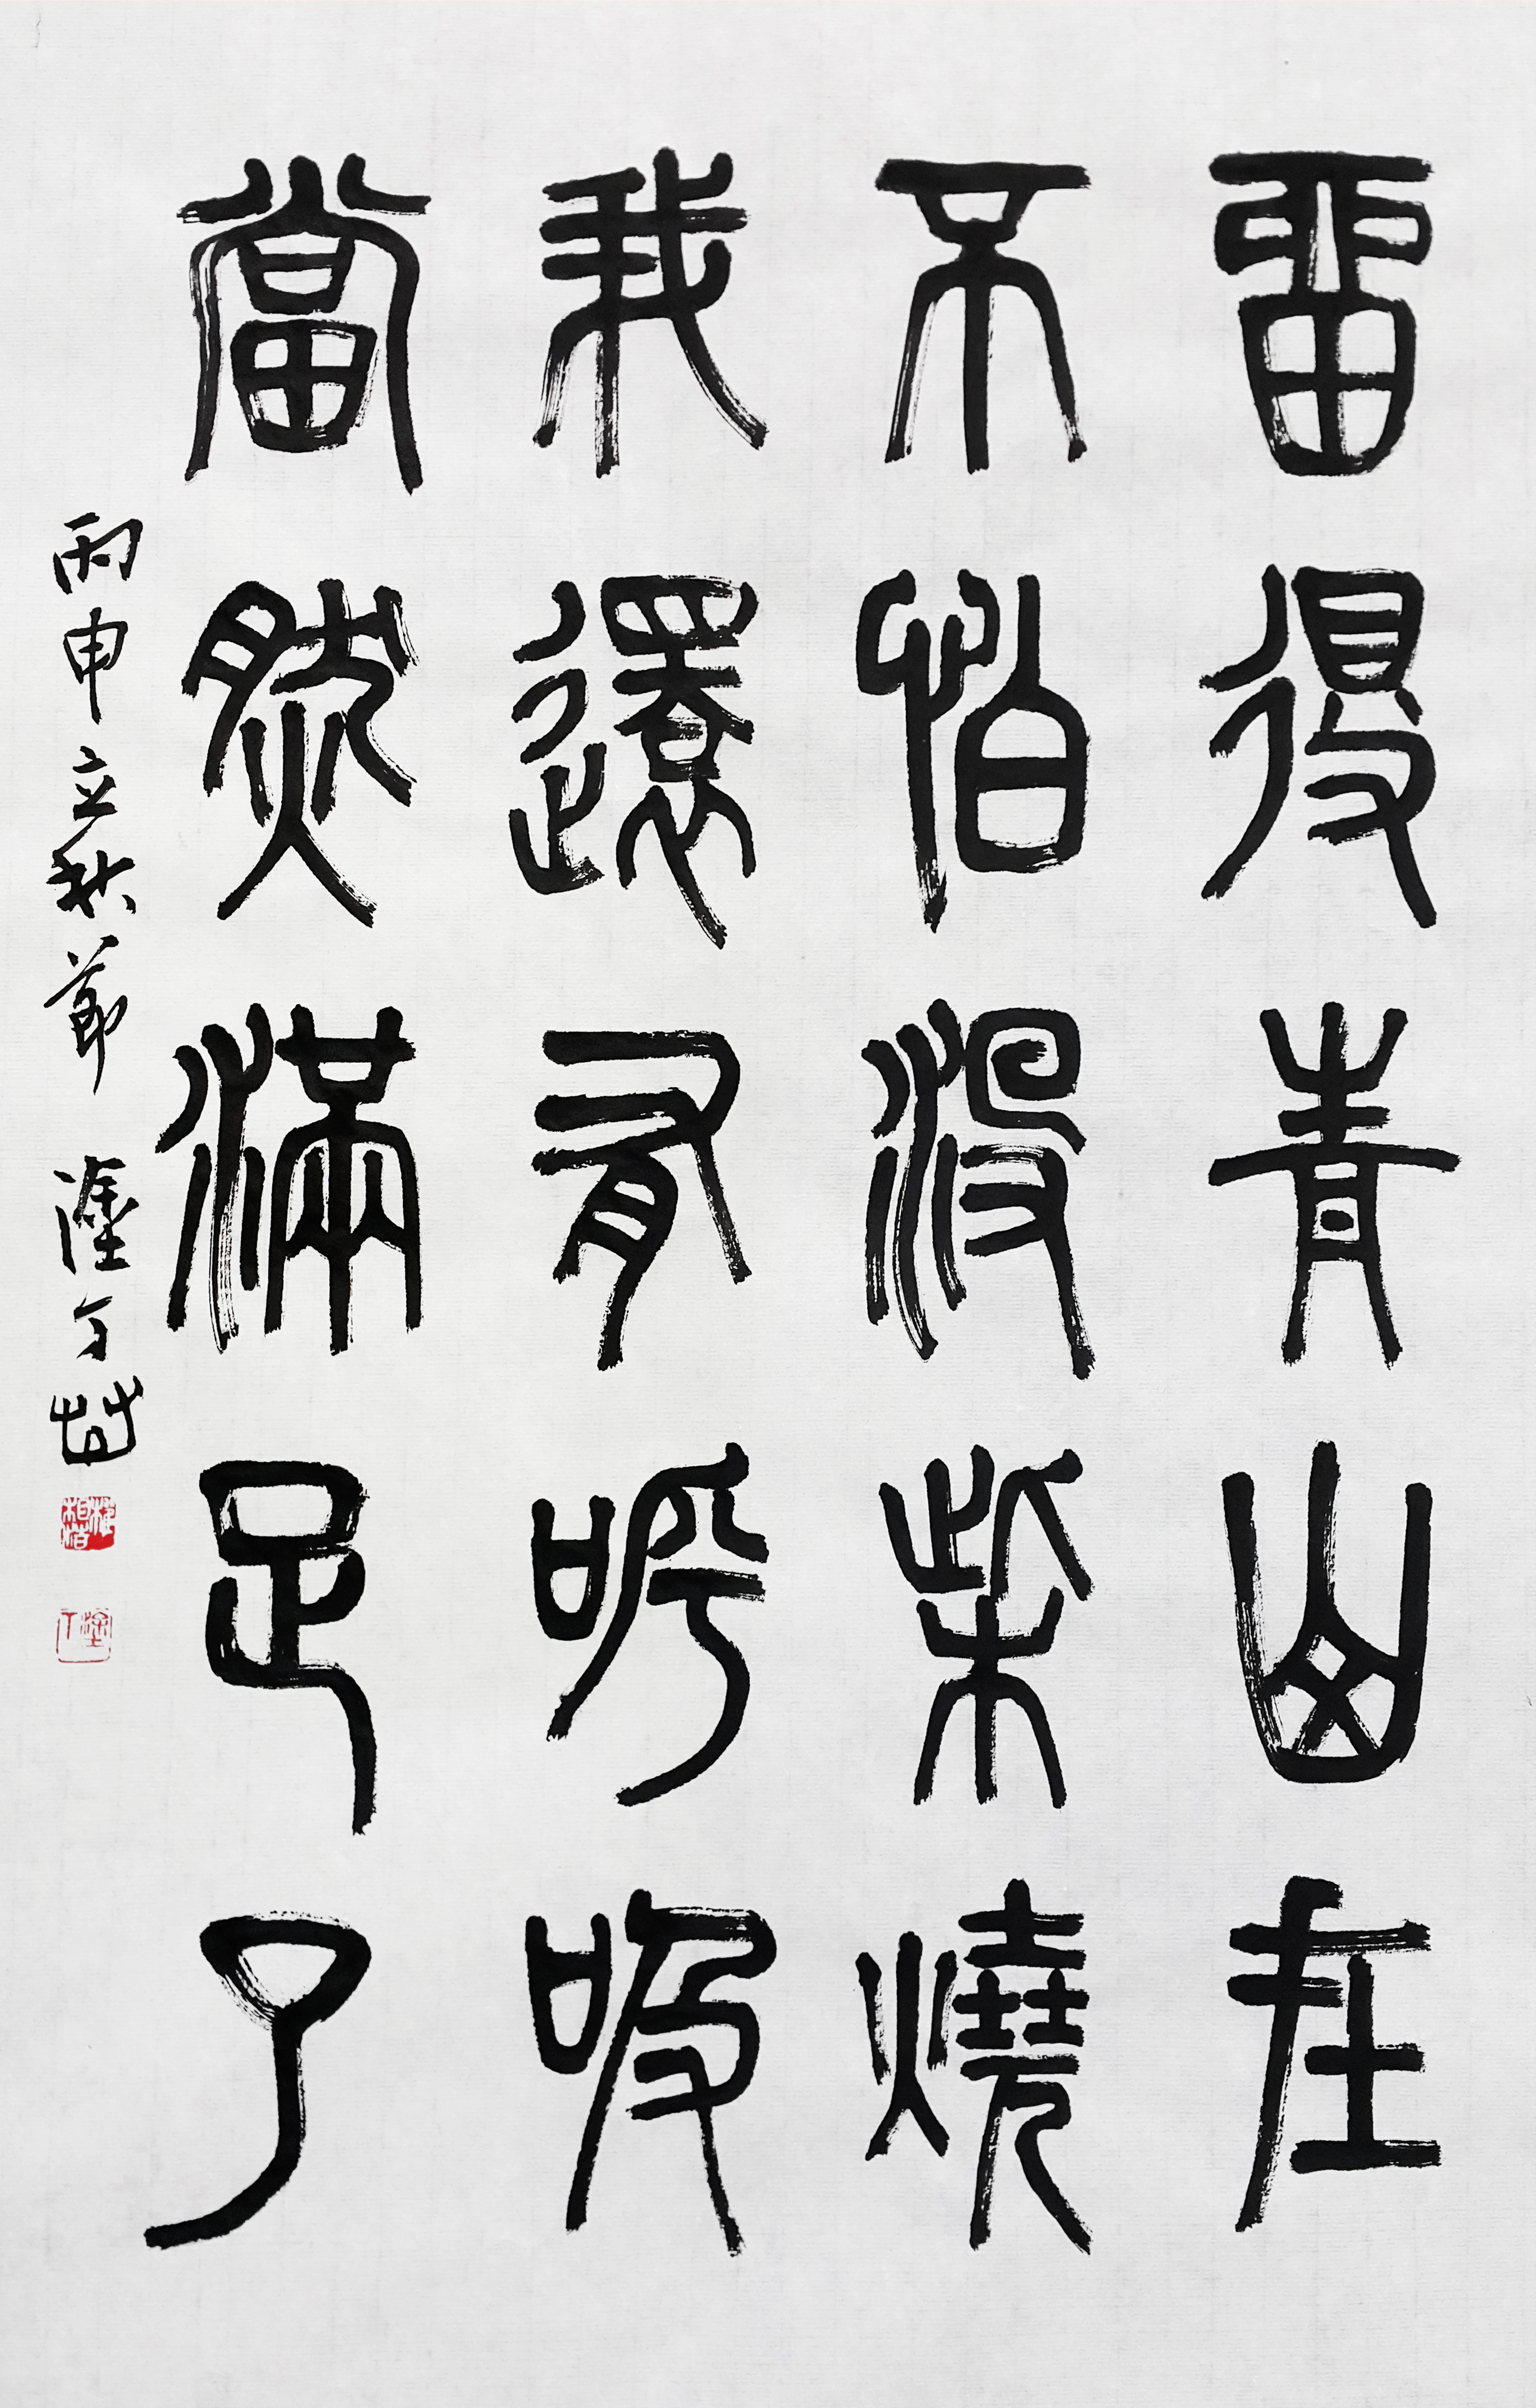 留得青山在
不怕沒柴燒
我還有呼吸
當然滿足了
丙申立秋節